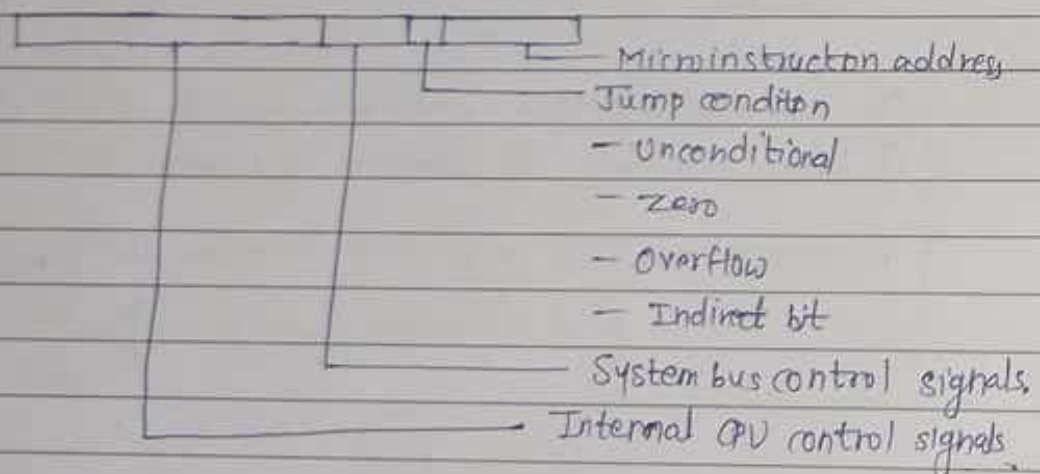 Micminstructon address
Jump conditon
- Unconditional
- Zero
- Overflow
- Indirect bit
System bus control signals.
Internal CPU control signals